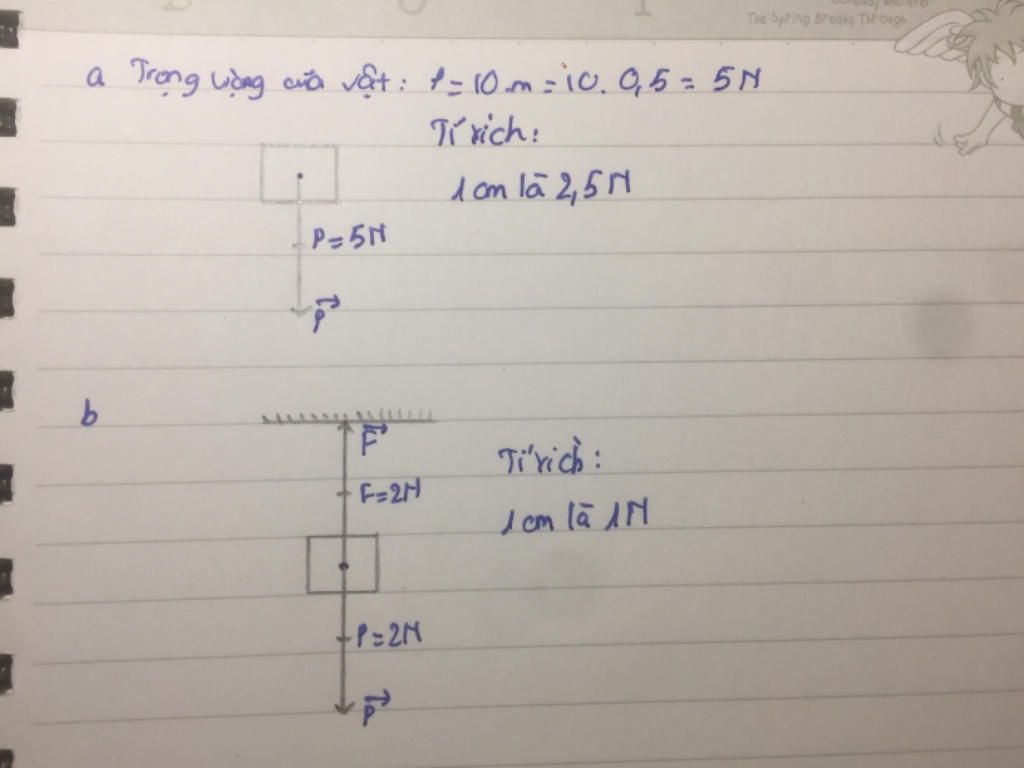 The Spring Breaks Through
a Trọng lượng của vật: P = 10.m = 10. 0,5 = 5N
Tỉ xích:
1 cm là 2,5N
P = 5N
P⃗
b
F⃗
Tỉ xích:
F = 2N
1 cm là 1N
P = 2N
P⃗